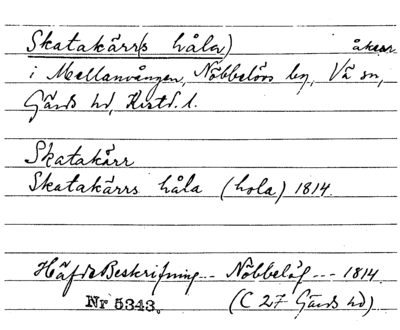 Skatakärr(s håla) åkrar
i Mellanvången, Nöbbelövs by, Vä sn,
Gärds hd, Krstd. l.
Skatakärr
Skatakärrs håla (hola) 1814.
HäfdeBeskrifning - - Nöbbelöf - - - 1814.
Nr 5343. (C 27 Gärds hd)